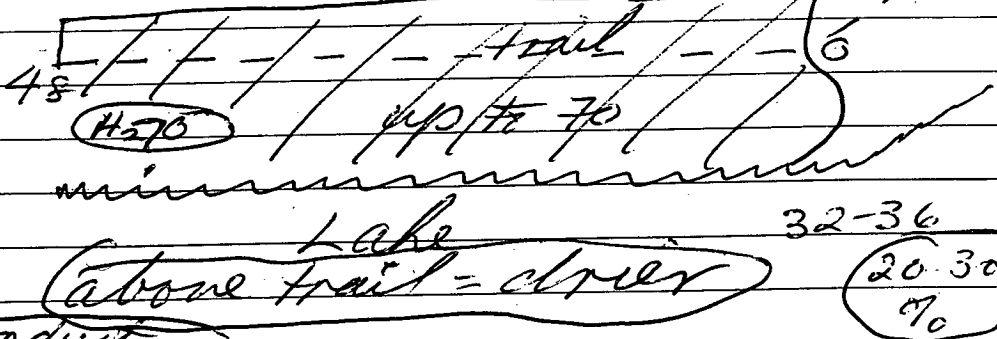 trail 6
48
H20 up to 70
Lake 32-36
above trail = drier 20-30
%